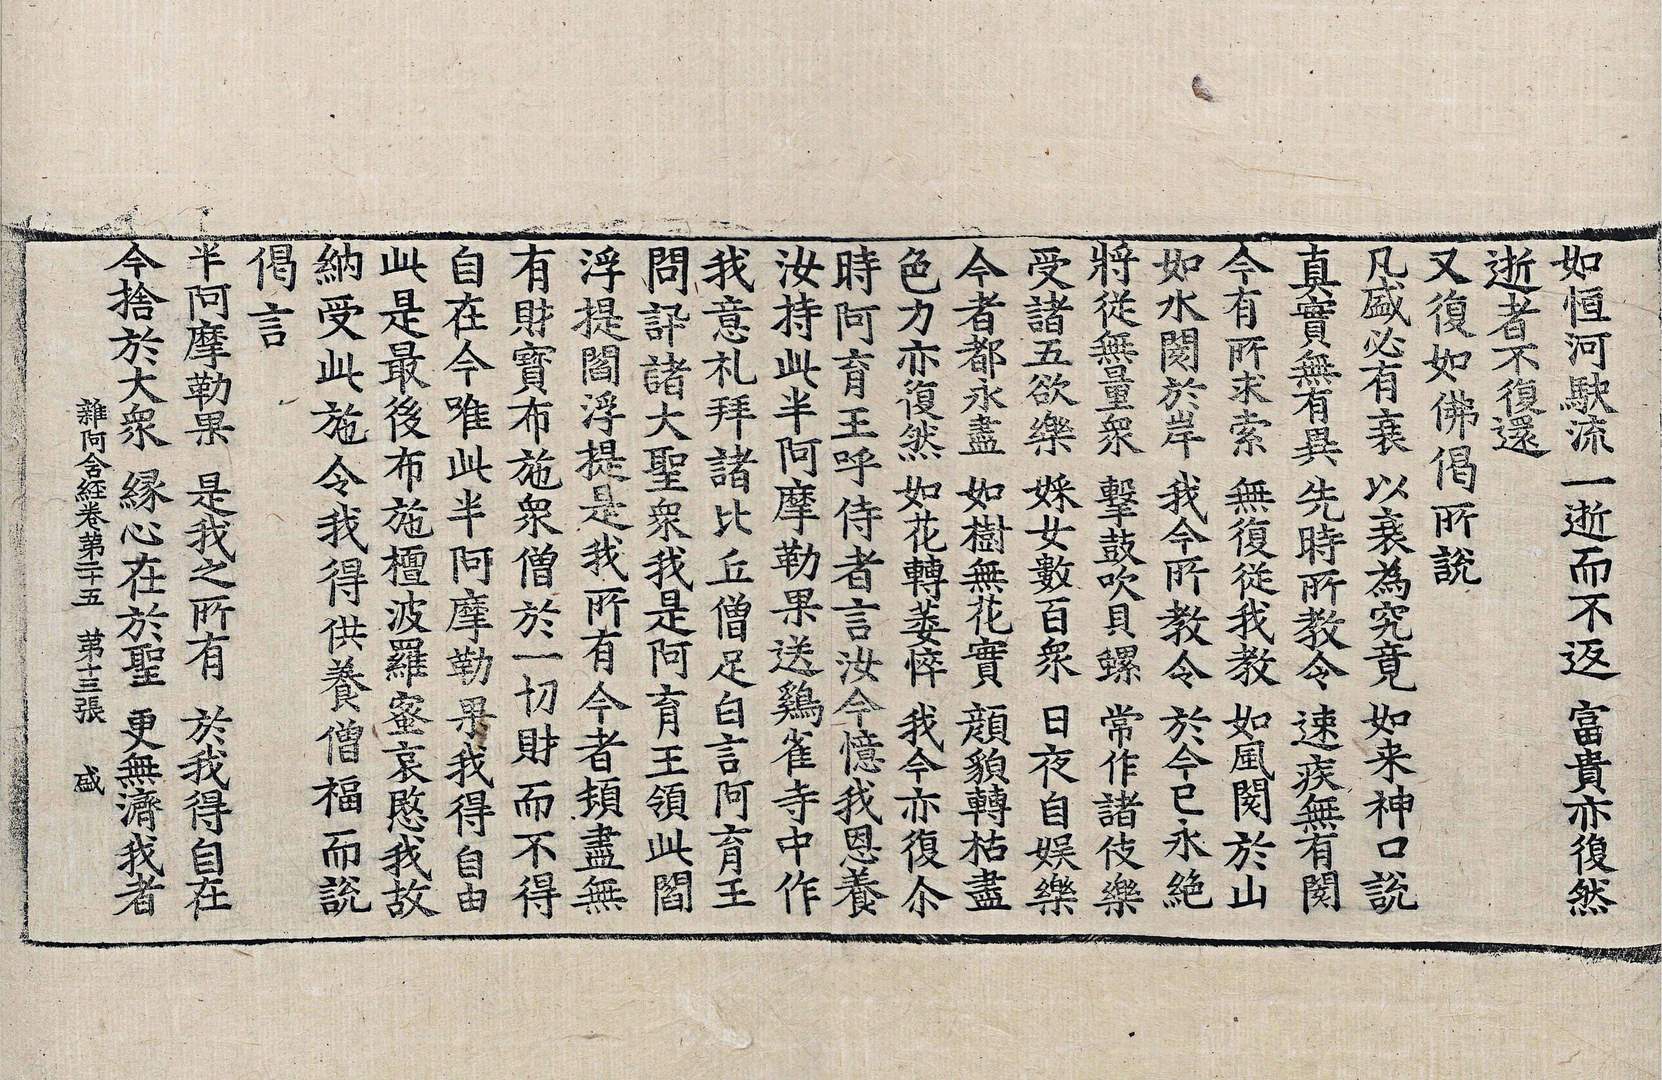 如恒河駛流 一逝而不返 冨貴亦復然
逝者不復還
又復如佛偈所說
凡盛必有衰 以衰為究竟 如来神口說
真實無有異 先時所教令 速疾無有閡
今有所求索 無復從我教 如風閡於山
如水閡於岸 我今所教令 於今已永絕
將從無量衆 擊鼓吹貝螺 常作諸伎樂
受諸五欲樂 婇女數百衆 日夜自娛樂
今者都永盡 如樹無花實 顔貌轉枯盡
色力亦復然 如花轉萎悴 我今亦復尒
時阿育王呼侍者言汝今憶我恩養
汝持此半阿摩勒果送鷄雀寺中作
我意礼拜諸比丘僧足白言阿育王
問訊諸大聖衆我是阿育王領此閻
浮提閻浮提是我所有今者頓盡無
有財寶布施衆僧於一切財而不得
自在今唯此半阿摩勒果我得自由
此是最後布施檀波羅蜜哀愍我故
納受此施令我得供養僧福而說
偈言
半阿摩勒果 是我之所有 於我得自在
今捨於大衆 緣心在於聖 更無濟我者
雜阿含經卷第二十五 第十三張 盛